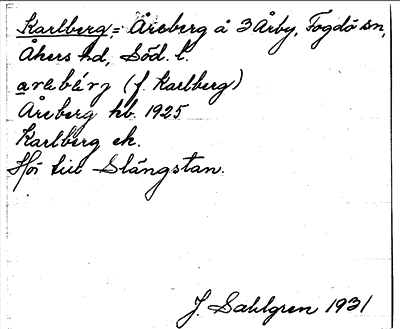 Karlberg = Åreberg å 3 Årby, Fogdö sn,
Åkers hd, Söd. l.
arebérj (f. Karlberg)
Åreberg hb. 1925
Karlberg ek.
Hör till Slängstan.
J. Sahlgren 1931